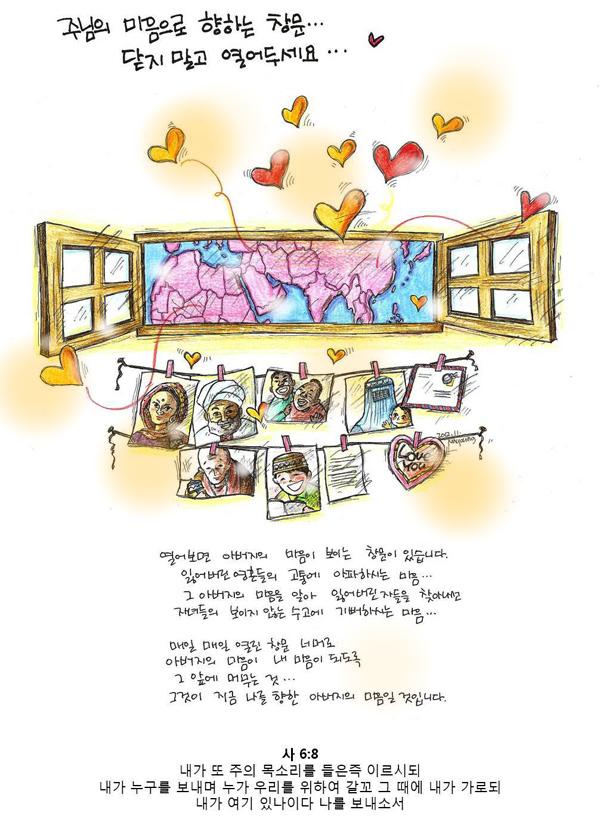 주님의 마음으로 향하는 창문...
닫지 말고 열어두세요...
2012.11.
Love
You
열어보면 아버지의 마음이 보이는 창문이 있습니다.
잃어버린 영혼들의 고통에 아파하시는 마음...
그 아버지의 마음을 알아 잃어버린 자들을 찾아나선
자녀들의 보이지 않는 수고에 기뻐하시는 마음...
매일 매일 열린 창문 너머로
아버지의 마음이 내 마음이 되도록
그 앞에 머무는 것...
그것이 지금 나를 향한 아버지의 마음일 것입니다.
사 6:8
내가 또 주의 목소리를 들은즉 이르시되
내가 누구를 보내며 누가 우리를 위하여 갈꼬 그 때에 내가 가로되
내가 여기 있나이다 나를 보내소서